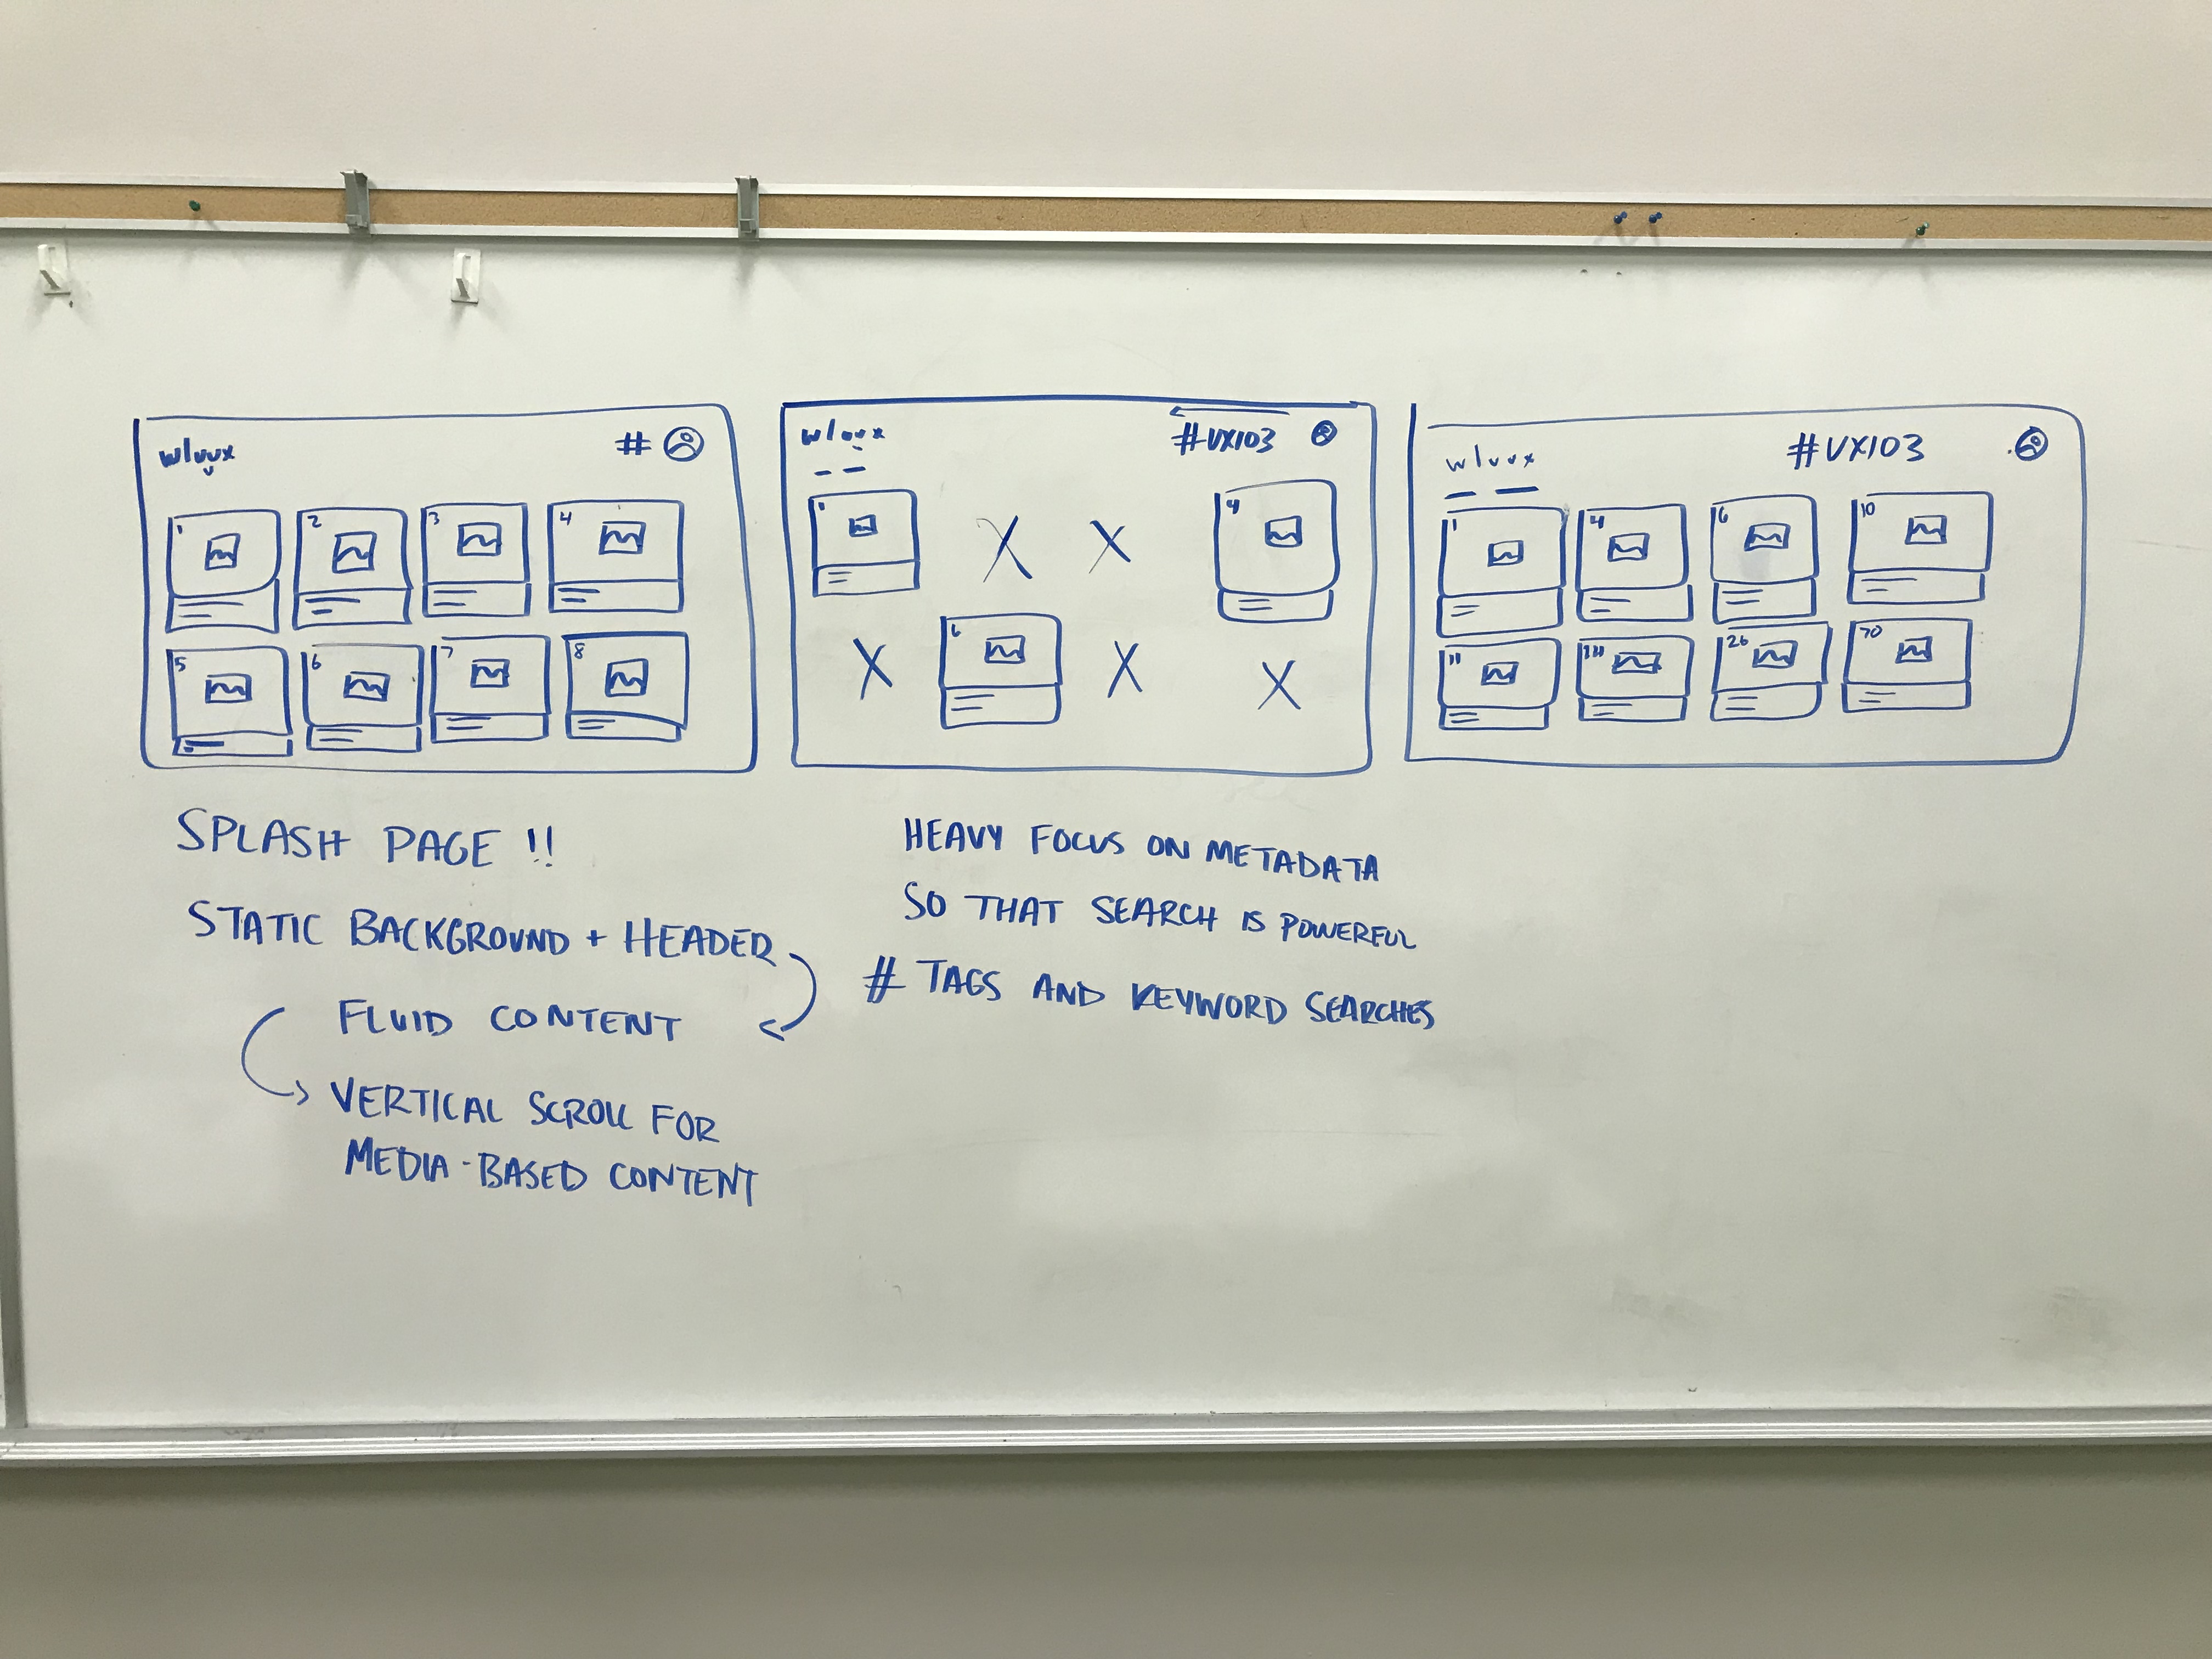 wluux #
1 2 3 4
5 6 7 8
wluux #UX103
1 4
6
wluux #UX103
1 4 6 10
11 26 70
SPLASH PAGE !!
STATIC BACKGROUND + HEADER
FLUID CONTENT
VERTICAL SCROLL FOR
MEDIA-BASED CONTENT
HEAVY FOCUS ON METADATA
SO THAT SEARCH IS POWERFUL
# TAGS AND KEYWORD SEARCHES